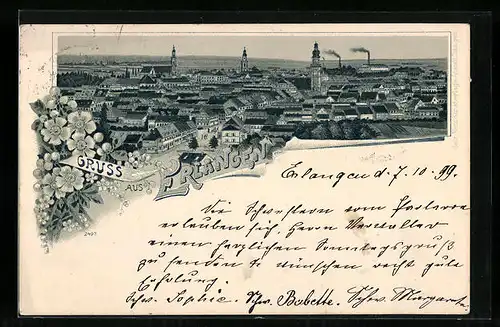 GRUSS
AUS
ERLANGEN.
2497
Erlangen d. 7. 10. 99.
Die Schwestern vom
erlauben sich, Herrn Verwalter
einen herzlichen Sonntagsgruß
zu senden & wünschen recht gute
Erholung.
Schw. Sophie. Schw. Babette. Schw. Margarete